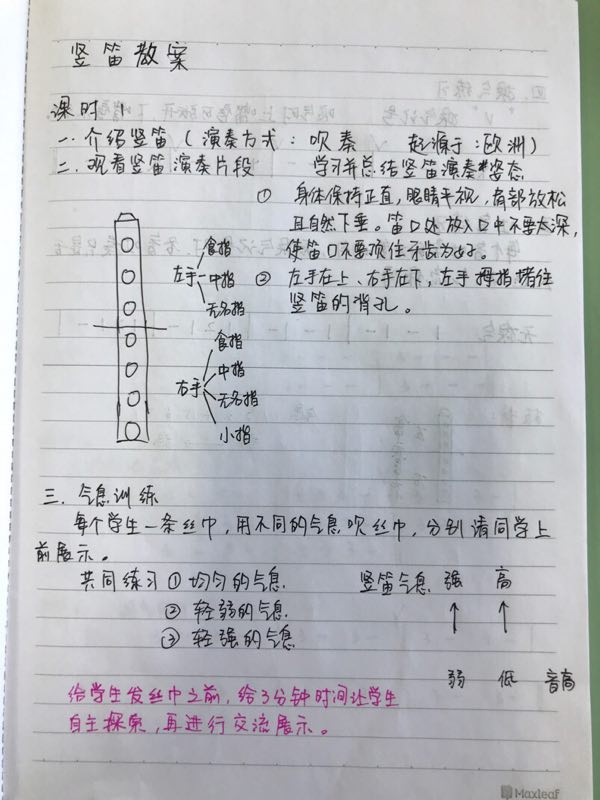 竖笛教案
课时1
一.介绍竖笛(演奏方式:吹奏 起源于:欧洲)
二.观看竖笛演奏片段 学习并总结竖笛演奏姿态
① 身体保持正直,眼睛平视,肩部放松
且自然下垂。笛口处放入口中不要太深,
使笛口不要顶住牙齿为好。
② 左手在上、右手在下,左手拇指堵住
竖笛的背孔。
左手
食指
中指
无名指
右手
食指
中指
无名指
小指
三.气息训练
每个学生一条丝巾,用不同的气息吹丝巾,分别请同学上
前展示。
共同练习 ① 均匀的气息 竖笛气息 强 高
② 轻弱的气息 ↑ ↑
③ 轻强的气息
弱 低 音高
给学生发丝巾之前,给3分钟时间让学生
自主探索,再进行交流展示。
Maxleaf